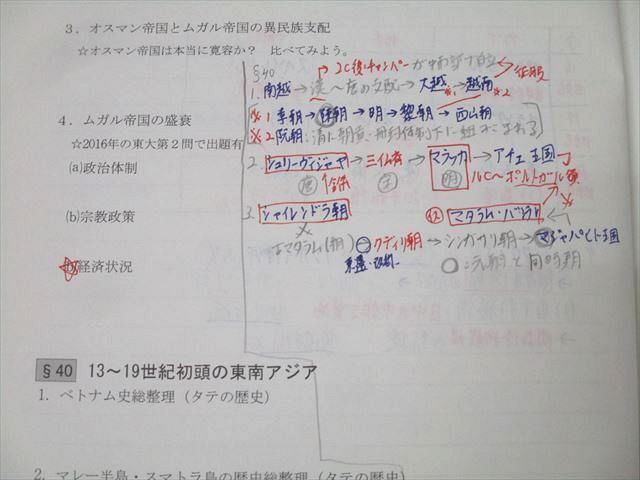 3．オスマン帝国とムガル帝国の異民族支配
☆オスマン帝国は本当に寛容か？ 比べてみよう。
4．ムガル帝国の盛衰
☆2016年の東大第2問で出題有
(a)政治体制
(b)宗教政策
経済状況
§40
2C後チャンパーが
1. 南越→漢〜唐の支配→大越→越南 征服
※1 李朝→陳朝→明→黎朝→西山朝
※2 阮朝
2. シュリーヴィジャヤ→三仏斉→マラッカ→アチェ王国
唐 宋 明 16C〜ポルトガル領
3. シャイレンドラ朝 マタラム・バンテン
古マタラム(朝) クディリ朝→シンガサリ朝→マジャパヒト王国
元朝と同時期
§40 13〜19世紀初頭の東南アジア
1．ベトナム史総整理（タテの歴史）
2．マレー半島・スマトラ島の歴史総整理（タテの歴史）